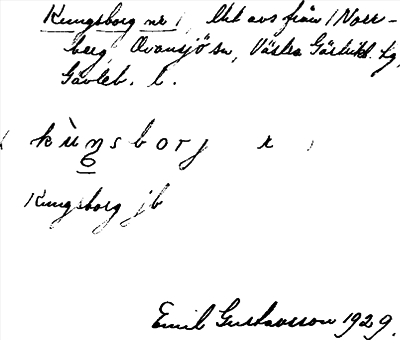 Kungsborg nr 1, lht avs från 1 Norr-
berg, Ovansjö sn, Västra Gästrikl. tg,
Gävleb. l.
kùngsborg
Kungsborg jb
Emil Gustavsson 1929.